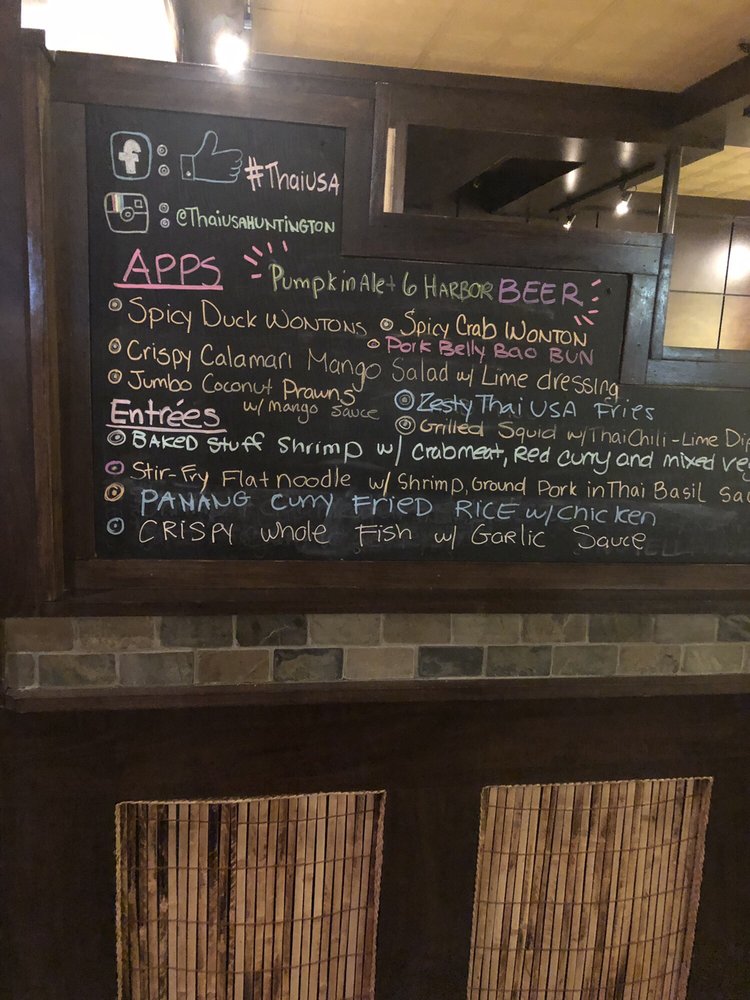 f : #ThaiUSA
: @ThaiusaHuntington
APPS
Pumpkin Ale + 6 HARBOR BEER
Spicy Duck Wontons
Spicy Crab Wonton
Pork Belly Bao Bun
Crispy Calamari Mango Salad w/ Lime dressing
Jumbo Coconut Prawns
w/ mango sauce
Zesty Thai USA Fries
Grilled Squid w/ Thai Chili-Lime
Entrées
Baked Stuff Shrimp w/ Crabmeat, Red Curry and mixed
Stir-Fry Flat noodle w/ Shrimp, Ground Pork in Thai Basil
PANANG Curry Fried Rice w/ chicken
CRISPY whole Fish w/ Garlic Sauce